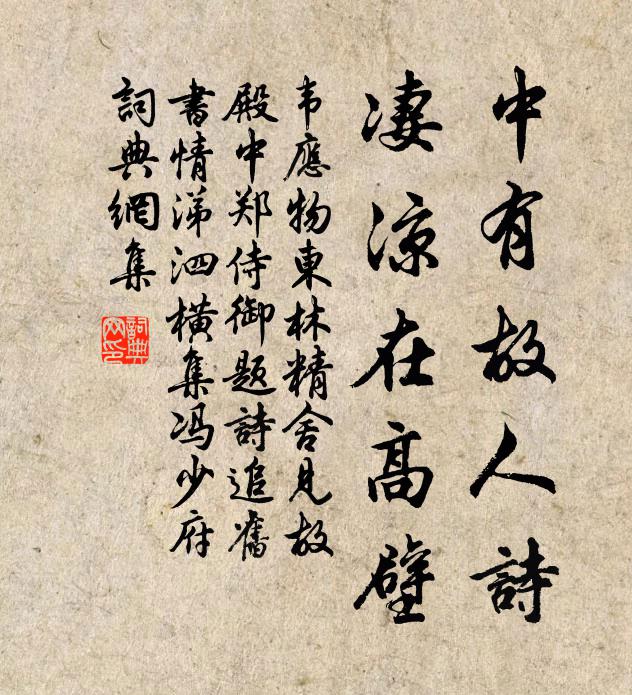 中有故人詩
凄涼在高壁
韦應物東林精舍見故
殿中郑侍御题詩追舊
書情涕泗橫集冯少府
詞典網集
詞典网印